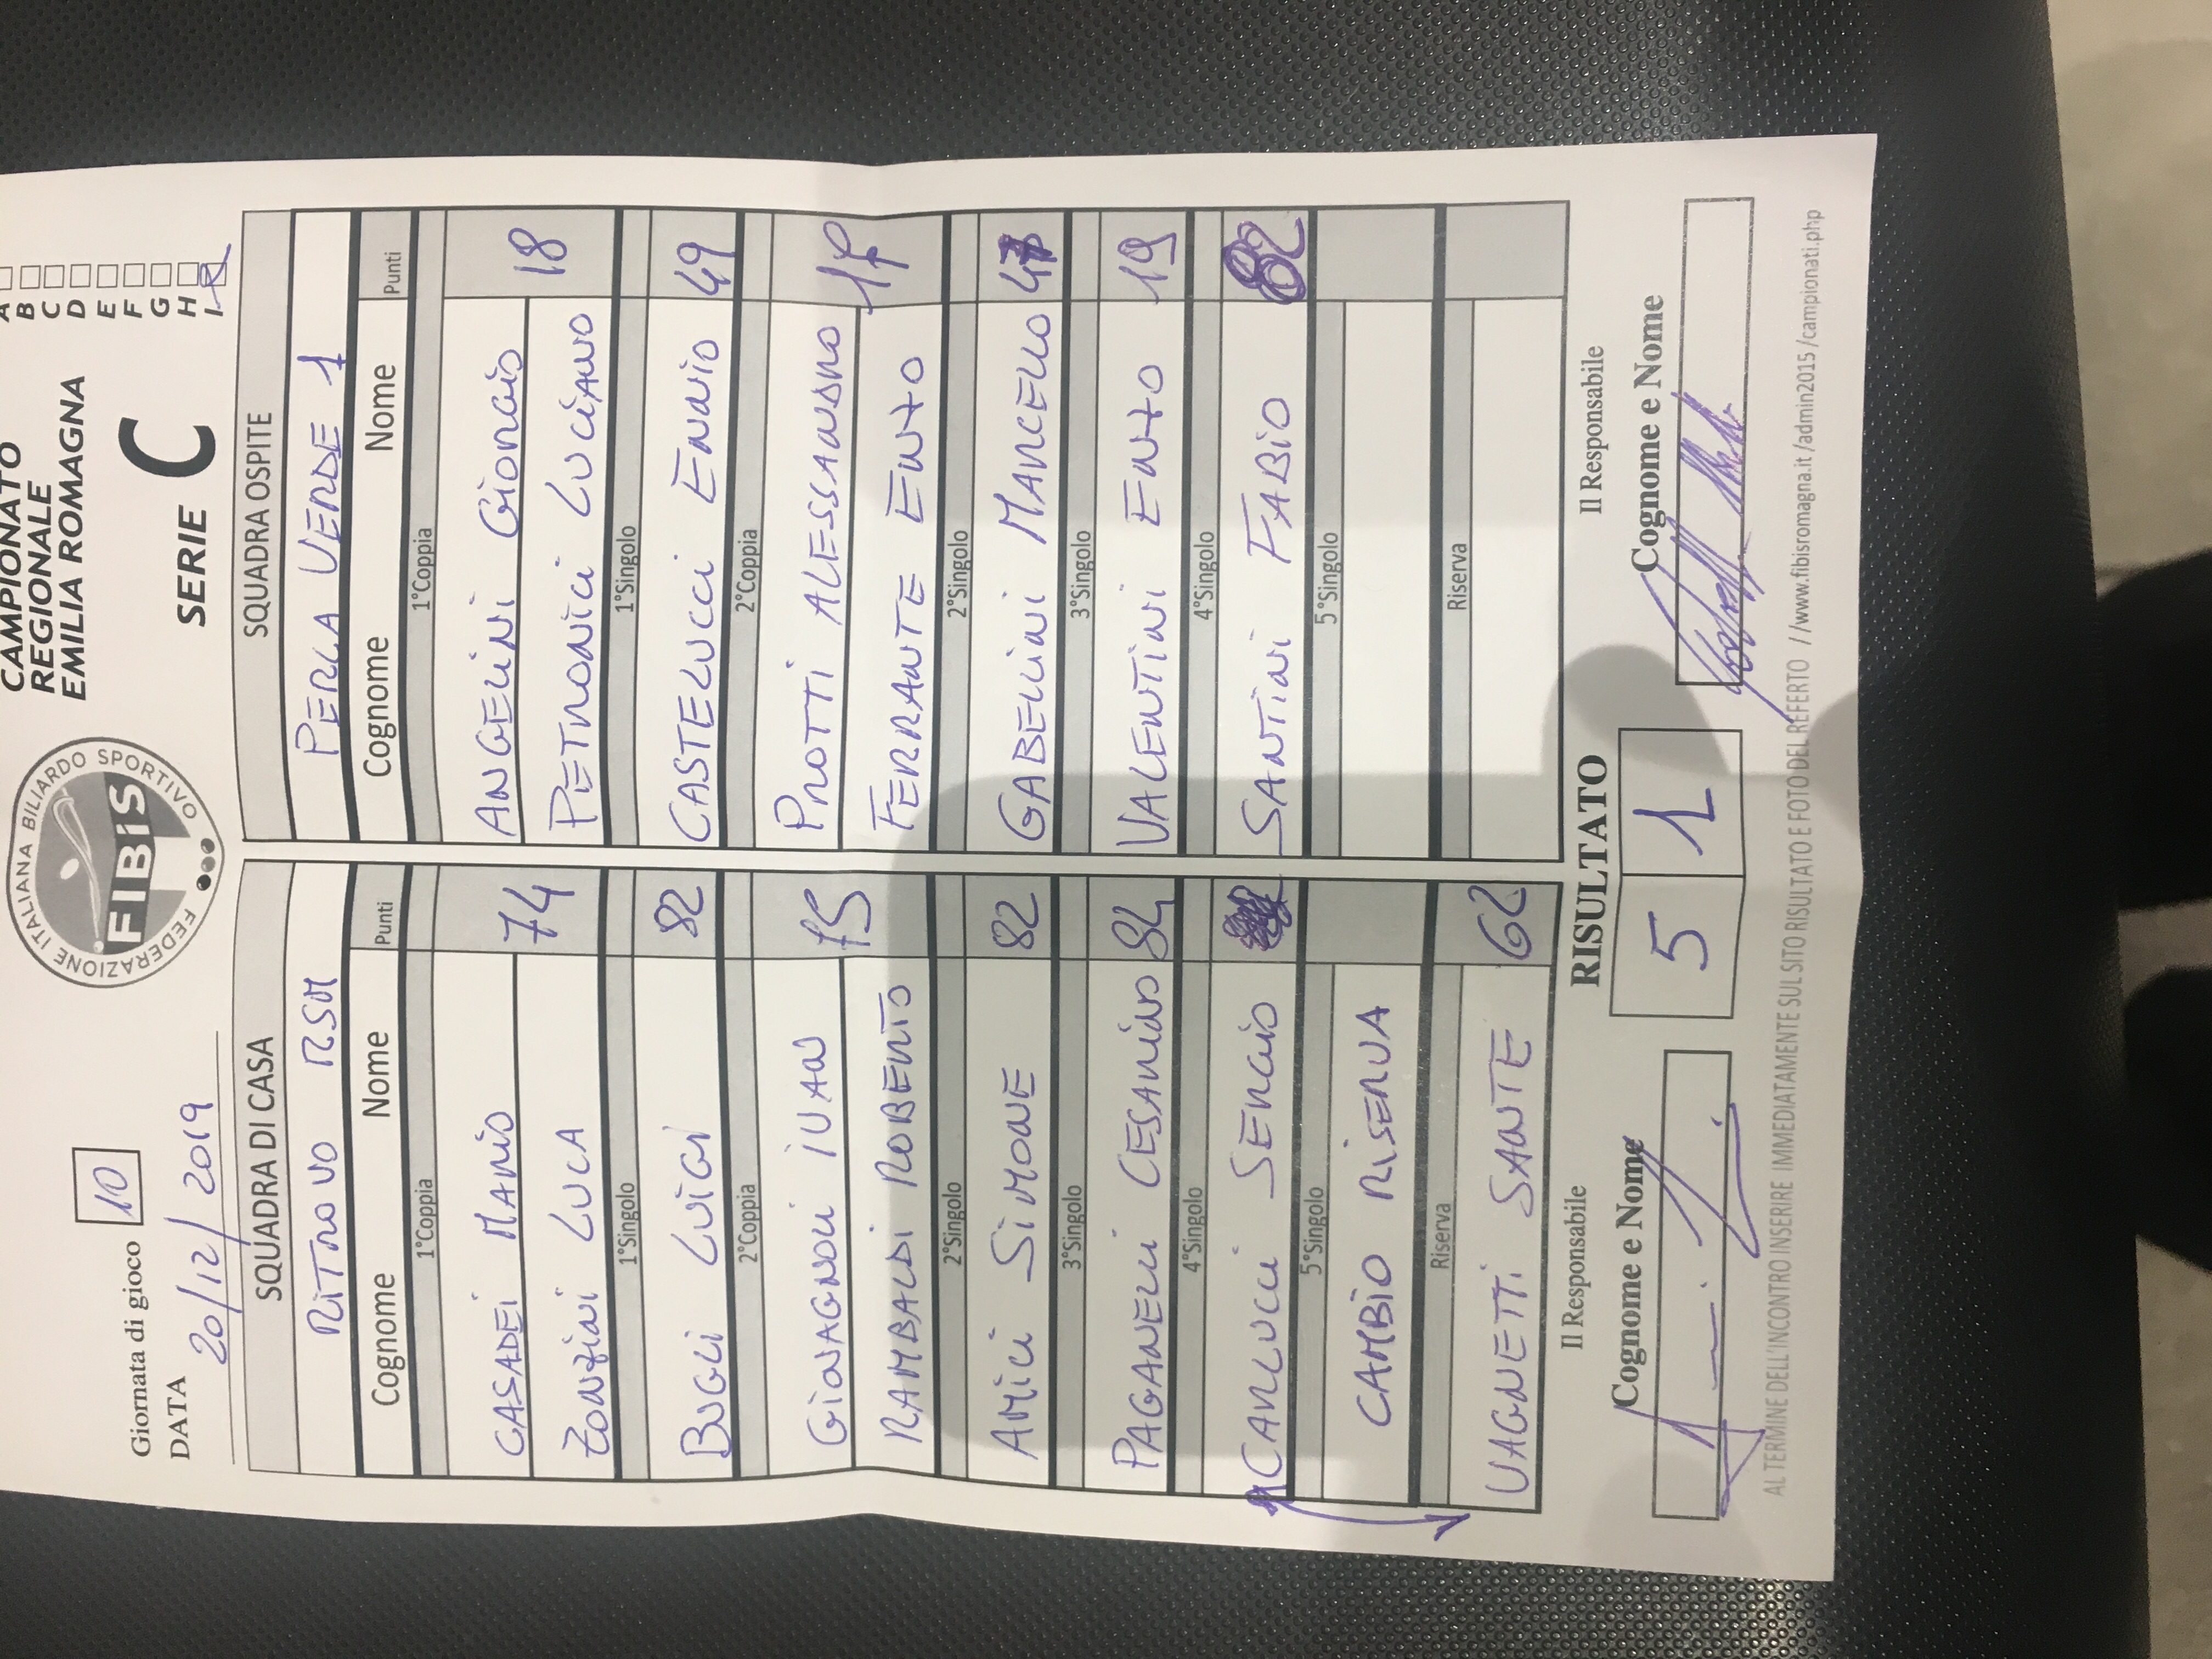 Giornata di gioco 10
DATA 20/12/2019
FEDERAZIONE ITALIANA BILIARDO SPORTIVO
FIBiS
CAMPIONATO
REGIONALE
EMILIA ROMAGNA
SERIE C
A
B
C
D
E
F
G
H
I
SQUADRA DI CASA
RITROVO RSM
Cognome Nome Punti
1°Coppia
CASADEI MARIO
ZONZINI LUCA
74
1°Singolo
BUGLI LUIGI 82
2°Coppia
GIOVAGNOLI IVAN
RAMBALDI ROBERTO
75
2°Singolo
AMICI SIMONE 82
3°Singolo
PAGANELLI CESARINO 84
4°Singolo
CARLUCCI SERGIO
5°Singolo
CAMBIO RISERVA
Riserva
VAGNETTI SANTE 62
SQUADRA OSPITE
PERLA VERDE 1
Cognome Nome Punti
1°Coppia
ANGELINI GIORGIO
PETRONICI LUCIANO
18
1°Singolo
CASTELUCCI ENNIO 49
2°Coppia
PROTTI ALESSANDRO
FERRANTE ENZO
17
2°Singolo
GABELLINI MARCELLO
3°Singolo
VALENTINI ENZO 19
4°Singolo
SANTINI FABIO 82
5°Singolo
Riserva
Il Responsabile
Cognome e Nome
RISULTATO
5 1
Il Responsabile
Cognome e Nome
AL TERMINE DELL'INCONTRO INSERIRE IMMEDIATAMENTE SUL SITO RISULTATO E FOTO DEL REFERTO //www.fibisromagna.it/admin2015/campionati.php